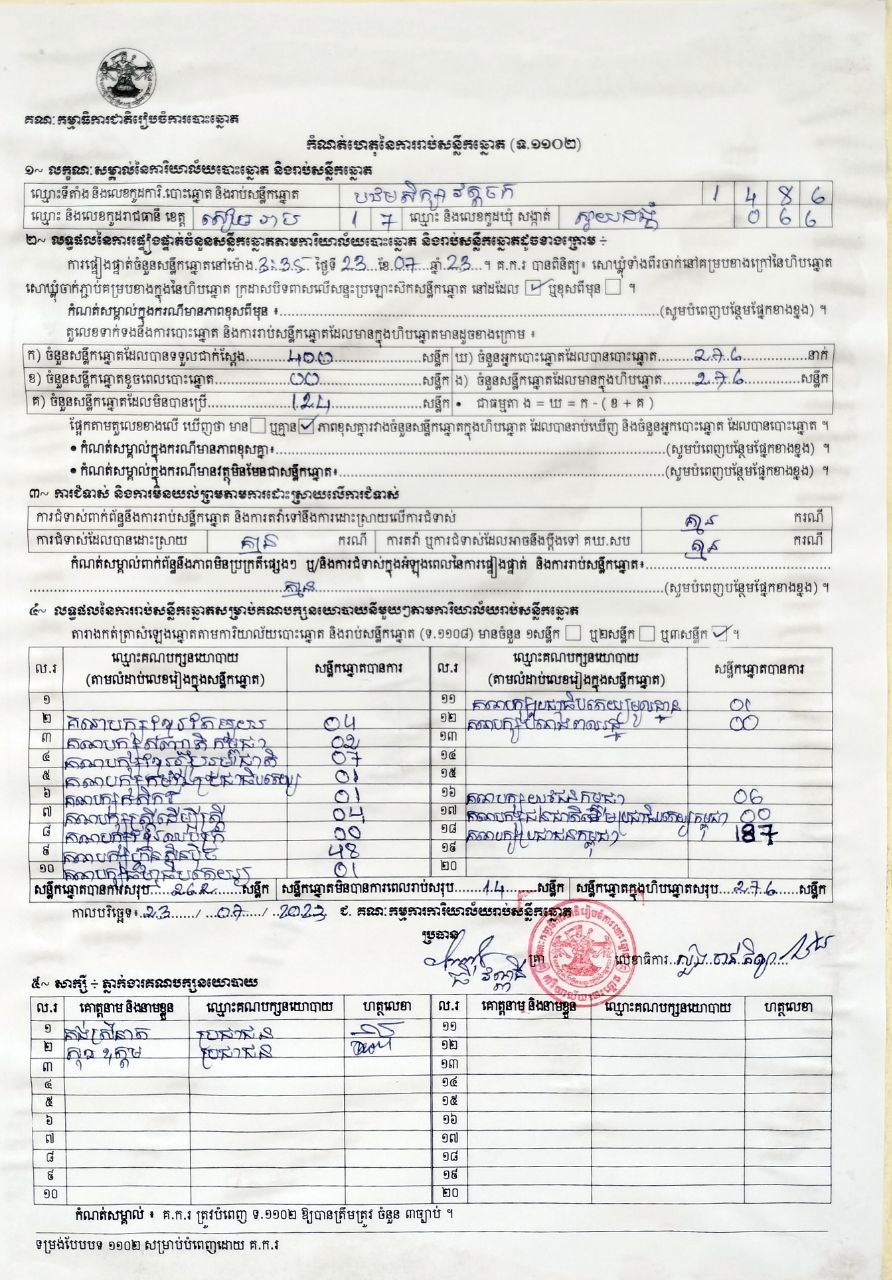 គណៈកម្មាធិការជាតិរៀបចំការបោះឆ្នោត
កំណត់ហេតុនៃការរាប់សន្លឹកឆ្នោត (ទ.១១០២)
១~ លក្ខណៈសម្គាល់នៃការិយាល័យបោះឆ្នោត និងរាប់សន្លឹកឆ្នោត
ឈ្មោះទីតាំង និងលេខកូដការិ.បោះឆ្នោត និងរាប់សន្លឹកឆ្នោត បឋមសិក្សា វត្តចក 1 4 8 6
ឈ្មោះ និងលេខកូដរាជធានី ខេត្ត សៀមរាប 1 7 ឈ្មោះ និងលេខកូដឃុំ សង្កាត់ ស្វាយដង្គំ 0 6 6
២~ លទ្ធផលនៃការផ្ទៀងផ្ទាត់ចំនួនសន្លឹកឆ្នោតតាមការិយាល័យបោះឆ្នោត និងរាប់សន្លឹកឆ្នោតដូចខាងក្រោម ÷
ការផ្ទៀងផ្ទាត់ចំនួនសន្លឹកឆ្នោតនៅម៉ោង.3:35 ថ្ងៃទី 23 ខែ.07 ឆ្នាំ.23 ។ គ.ក.រ បានពិនិត្យ៖ សោឃ្លុំទាំងពីរចាក់នៅគម្របខាងក្រៅនៃហិបឆ្នោត
សោឃ្លុំចាក់ភ្ជាប់គម្របខាងក្នុងនៃហិបឆ្នោត ក្រដាសបិទពាសលើសន្ទះប្រឡោះស៊កសន្លឹកឆ្នោត នៅដដែល ☑ ឬខុសពីមុន ☐ ។
កំណត់សម្គាល់ក្នុងករណីមានភាពខុសពីមុន ៖ (សូមបំពេញបន្ថែមផ្នែកខាងខ្នង) ។
តួលេខទាក់ទងនឹងការបោះឆ្នោត និងការរាប់សន្លឹកឆ្នោតដែលមានក្នុងហិបឆ្នោតមានដូចខាងក្រោម ៖
ក) ចំនួនសន្លឹកឆ្នោតដែលបានទទួលជាក់ស្តែង 400 សន្លឹក ឃ) ចំនួនអ្នកបោះឆ្នោតដែលបានបោះឆ្នោត 276 នាក់
ខ) ចំនួនសន្លឹកឆ្នោតខូចពេលបោះឆ្នោត 00 សន្លឹក ង) ចំនួនសន្លឹកឆ្នោតដែលមានក្នុងហិបឆ្នោត 276 សន្លឹក
គ) ចំនួនសន្លឹកឆ្នោតដែលមិនបានប្រើ 124 សន្លឹក • ជាធម្មតា ង = ឃ = ក - ( ខ + គ )
ផ្អែកតាមតួលេខខាងលើ ឃើញថា មាន ☐ ឬគ្មាន ☑ ភាពខុសគ្នារវាងចំនួនសន្លឹកឆ្នោតក្នុងហិបឆ្នោត ដែលបានរាប់ឃើញ និងចំនួនអ្នកបោះឆ្នោត ដែលបានបោះឆ្នោត ។
• កំណត់សម្គាល់ក្នុងករណីមានភាពខុសគ្នា៖ (សូមបំពេញបន្ថែមផ្នែកខាងខ្នង) ។
• កំណត់សម្គាល់ក្នុងករណីមានវត្ថុមិនមែនជាសន្លឹកឆ្នោត៖ (សូមបំពេញបន្ថែមផ្នែកខាងខ្នង) ។
៣~ ការជំទាស់ និងការមិនយល់ព្រមតាមការដោះស្រាយលើការជំទាស់
ការជំទាស់ពាក់ព័ន្ធនឹងការរាប់សន្លឹកឆ្នោត និងការតវ៉ាទៅនឹងការដោះស្រាយលើការជំទាស់ គ្មាន ករណី
ការជំទាស់ដែលបានដោះស្រាយ គ្មាន ករណី ការតវ៉ា ឬការជំទាស់ដែលអាចនឹងប្តឹងទៅ គឃ.សប គ្មាន ករណី
កំណត់សម្គាល់ពាក់ព័ន្ធនឹងភាពមិនប្រក្រតីផ្សេងៗ ឬ/និងការជំទាស់ក្នុងអំឡុងពេលនៃការផ្ទៀងផ្ទាត់ និងការរាប់សន្លឹកឆ្នោត៖
គ្មាន (សូមបំពេញបន្ថែមផ្នែកខាងខ្នង) ។
៤~ លទ្ធផលនៃការរាប់សន្លឹកឆ្នោតសម្រាប់គណបក្សនយោបាយនីមួយៗតាមការិយាល័យរាប់សន្លឹកឆ្នោត
តារាងកត់ត្រាសំឡេងឆ្នោតតាមការិយាល័យបោះឆ្នោត និងរាប់សន្លឹកឆ្នោត (ទ.១១០៨) មានចំនួន ១សន្លឹក ☐ ឬ២សន្លឹក ☐ ឬ៣សន្លឹក ☑ ។
ល.រ ឈ្មោះគណបក្សនយោបាយ (តាមលំដាប់លេខរៀងក្នុងសន្លឹកឆ្នោត) សន្លឹកឆ្នោតបានការ
១
២ 04
៣ គណបក្សសញ្ជាតិកម្ពុជា 02
៤ 07
៥ 01
៦ 01
៧ គណបក្សស្ត្រីដើម្បីស្ត្រី 04
៨ 00
៩ គណបក្សហ្វ៊ុនស៊ិនប៉ិច 48
១០ គណបក្សធម្មាធិបតេយ្យ 01
ល.រ ឈ្មោះគណបក្សនយោបាយ (តាមលំដាប់លេខរៀងក្នុងសន្លឹកឆ្នោត) សន្លឹកឆ្នោតបានការ
១១ គណបក្សប្រជាធិបតេយ្យមូលដ្ឋាន 01
១២ គណបក្សបំណងពលរដ្ឋ 00
១៣
១៤
១៥
១៦ គណបក្សយុវជនកម្ពុជា 06
១៧ គណបក្សជនជាតិដើមប្រជាធិបតេយ្យកម្ពុជា 00
១៨ គណបក្សប្រជាជនកម្ពុជា 187
១៩
២០
សន្លឹកឆ្នោតបានការសរុប 262 សន្លឹក សន្លឹកឆ្នោតមិនបានការពេលរាប់សរុប 14 សន្លឹក សន្លឹកឆ្នោតក្នុងហិបឆ្នោតសរុប 276 សន្លឹក
កាលបរិច្ឆេទ៖ 23 / 07 / 2023 ជ. គណៈកម្មការការិយាល័យរាប់សន្លឹកឆ្នោត
ប្រធាន
ត្រា លេខាធិការ
៥~ សាក្សី ÷ ភ្នាក់ងារគណបក្សនយោបាយ
ល.រ គោត្តនាម និងនាមខ្លួន ឈ្មោះគណបក្សនយោបាយ ហត្ថលេខា
១ ប្រជាជន
២ សុខ ឧត្តម ប្រជាជន
៣
៤
៥
៦
៧
៨
៩
១០
ល.រ គោត្តនាម និងនាមខ្លួន ឈ្មោះគណបក្សនយោបាយ ហត្ថលេខា
១១
១២
១៣
១៤
១៥
១៦
១៧
១៨
១៩
២០
កំណត់សម្គាល់ ៖ គ.ក.រ ត្រូវបំពេញ ទ.១១០២ ឱ្យបានត្រឹមត្រូវ ចំនួន ៣ច្បាប់ ។
ទម្រង់បែបបទ ១១០២ សម្រាប់បំពេញដោយ គ.ក.រ